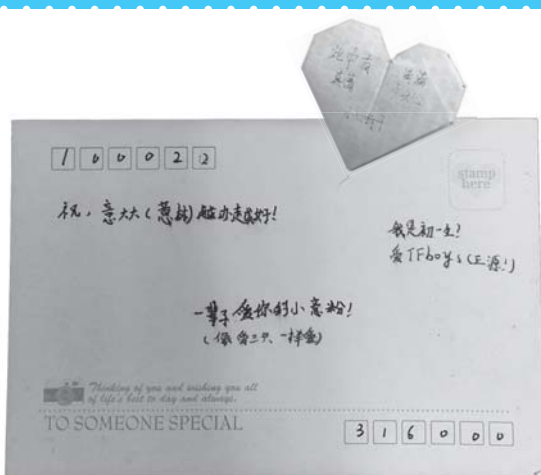 100022
stamp
here
祝，意大大（薏林）越办越好！
我是初一生！
爱TFboys（王源！）
一辈子爱你的小意粉！
（像爱三只一样爱）
Thinking of you and wishing you all
of life's best to day and always.
TO SOMEONE SPECIAL
316000